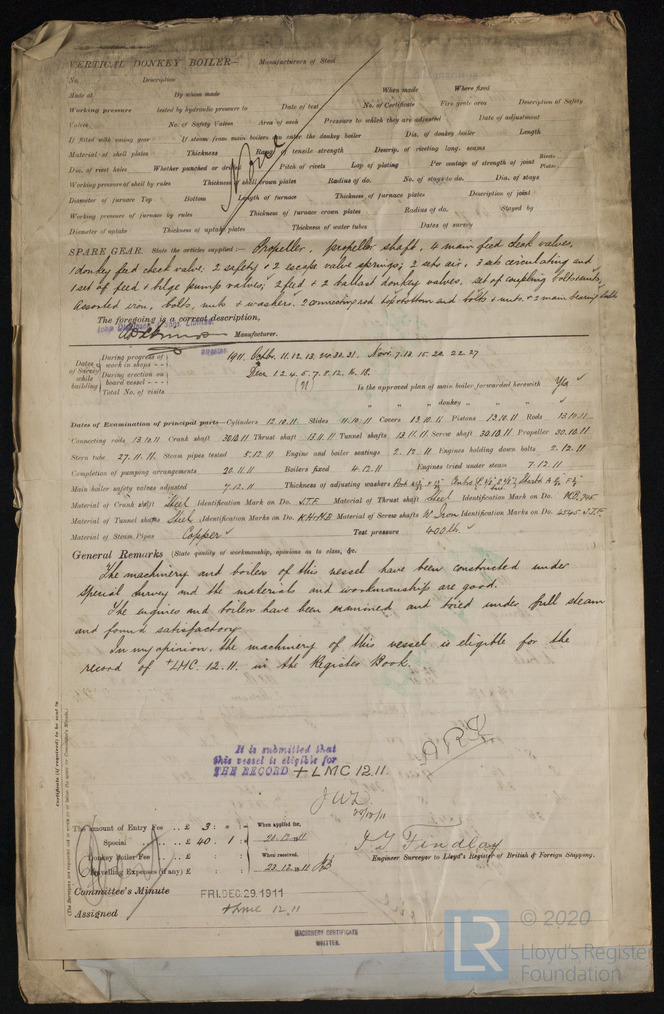 VERTICAL DONKEY BOILER— Manufacturers of Steel
No. Description
Made at By whom made When made Where fixed
Working pressure tested by hydraulic pressure to Date of test No. of Certificate Fire grate area Description of Safety
Valves No. of Safety Valves Area of each Pressure to which they are adjusted Date of adjustment
If fitted with easing gear If steam from main boilers can enter the donkey boiler Dia. of donkey boiler Length
Material of shell plates Thickness Range of tensile strength Descrip. of riveting long. seams
Dia. of rivet holes Whether punched or drilled Pitch of rivets Lap of plating Per centage of strength of joint Rivets Plates
Working pressure of shell by rules Thickness of shell crown plates Radius of do. No. of stays to do. Dia. of stays
Diameter of furnace Top Bottom Length of furnace Thickness of furnace plates Description of joint
Working pressure of furnace by rules Thickness of furnace crown plates Radius of do. Stayed by
Diameter of uptake Thickness of uptake plates Thickness of water tubes Dates of survey
None
SPARE GEAR. State the articles supplied:— Propeller, propeller shaft, 4 main feed check valves,
1 donkey feed check valve. 2 safety & 2 escape valve springs; 2 sets air, 3 sets circulating and
1 set of feed & bilge pump valves; 2 feed & 2 ballast donkey valves, set of coupling bolts & nuts,
assorted iron, bolts, nuts & washers. 2 connecting rod top & bottom end bolts & nuts. & 2 main bearing bolts
The foregoing is a correct description,
Manufacturer.
Dates of Survey while building
During progress of work in shops - - 1911. Octbr. 11. 12. 13. 24. 30. 31. Nov. 7. 13. 15. 20. 22. 27
During erection on board vessel - - - Dec. 1. 2. 4. 5. 7. 8. 12. 16. 18.
Total No. of visits (21) Is the approved plan of main boiler forwarded herewith Yes
" " " donkey " " "
Dates of Examination of principal parts—Cylinders 12.10.11. Slides 11.10.11 Covers 13.10.11 Pistons 13.10.11 Rods 13.10.11
Connecting rods 13.10.11 Crank shaft 30.10.11 Thrust shaft 13.11.11 Tunnel shafts 13.11.11 Screw shaft 30.10.11 Propeller 30.10.11
Stern tube 27.11.11. Steam pipes tested 5.12.11 Engine and boiler seatings 2.12.11 Engines holding down bolts 2.12.11
Completion of pumping arrangements 20.11.11 Boilers fixed 4.12.11 Engines tried under steam 7.12.11
Main boiler safety valves adjusted 7.12.11 Thickness of adjusting washers
Material of Crank shaft Steel Identification Mark on Do. J.T.F. Material of Thrust shaft Steel Identification Mark on Do.
Material of Tunnel shafts Steel Identification Marks on Do. Material of Screw shafts W. Iron Identification Marks on Do. 4545 J.T.F.
Material of Steam Pipes Copper Test pressure 400 lb.
General Remarks (State quality of workmanship, opinions as to class, &c.
The machinery and boilers of this vessel have been constructed under
special survey and the materials and workmanship are good.
The engines and boilers have been examined and tried under full steam
and found satisfactory.
In my opinion, the machinery of this vessel is eligible for the
record of +LMC. 12.11. in the Register Book.
Certificate (if required) to be sent to
It is submitted that
this vessel is eligible for
THE RECORD + LMC 12.11.
The amount of Entry Fee .. £ 3 : " : When applied for,
Special .. £ 40 . 1 : 21.12.11
Donkey Boiler Fee .. £ : : When received,
Travelling Expenses (if any) £ : : 23.12.11
J T Findlay
Engineer Surveyor to Lloyd's Register of British & Foreign Shipping.
Committee's Minute FRI. DEC. 29. 1911
Assigned + LMC 12.11
MACHINERY CERTIFICATE
WRITTEN.
LR
© 2020
Lloyd's Register
Foundation